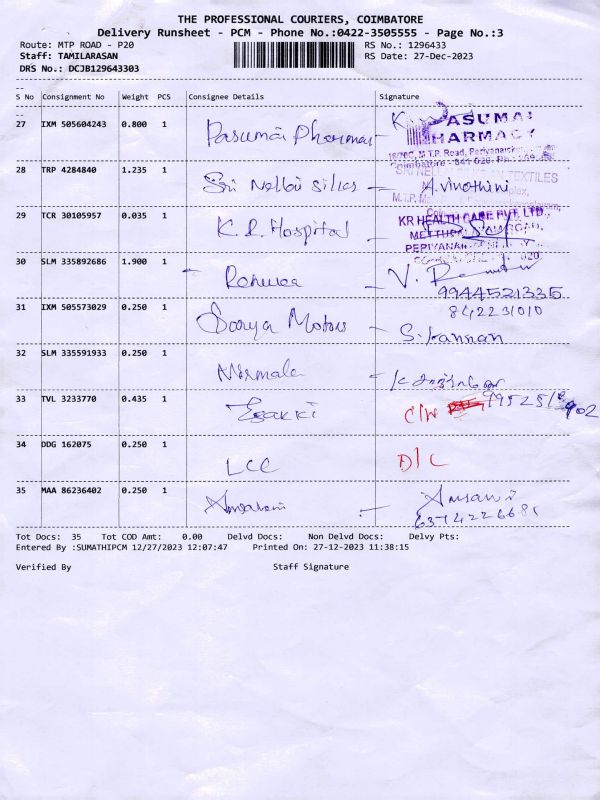 THE PROFESSIONAL COURIERS, COIMBATORE
Delivery Runsheet - PCM - Phone No.:0422-3505555 - Page No.:3
Route: MTP ROAD - P20
RS No.: 1296433
Staff: TAMILARASAN
RS Date: 27-Dec-2023
DRS No.: DCJB129643303
S No Consignment No Weight PCS Consignee Details Signature
27 IXM 505604243 0.800 1 Pasumai Pharmacy
PASUMAI
PHARMACY
28 TRP 4284840 1.235 1 Sri Nellai Silks - A. Vinothini
29 TCR 30105957 0.035 1 K.R. Hospital
KR HEALTH CARE PVT. LTD.,
30 SLM 335892686 1.900 1
9944521335
31 IXM 505573029 0.250 1 Soorya Motors - S. kannan
842231010
32 SLM 335591933 0.250 1 Nirmala
33 TVL 3233770 0.435 1 Esakki
34 DDG 162075 0.250 1 LCC D/C
35 MAA 86236402 0.250 1 - Ansari
Tot Docs: 35 Tot COD Amt: 0.00 Delvd Docs: Non Delvd Docs: Delvy Pts:
Entered By :SUMATHIPCM 12/27/2023 12:07:47 Printed On: 27-12-2023 11:38:15
Verified By Staff Signature